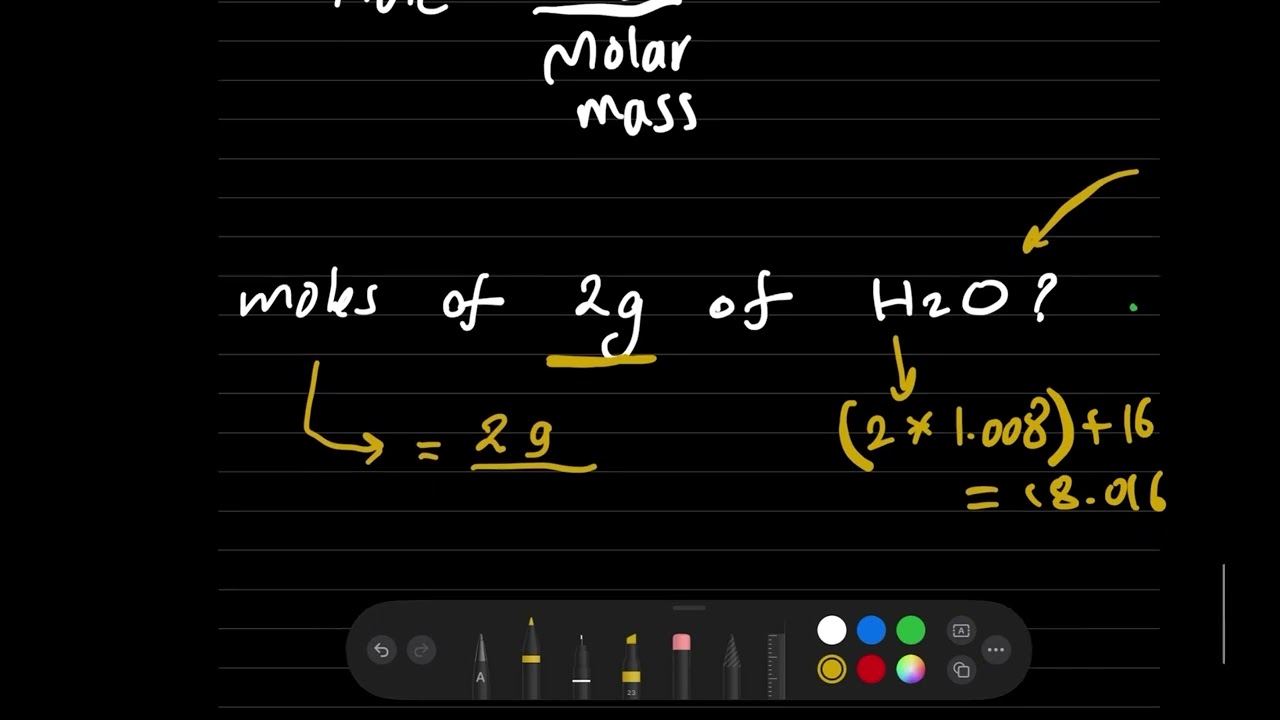 Molar
mass
moles of 2g of H2O?
(2 * 1.008) + 16
= 2g
= 18.016
A
23
A